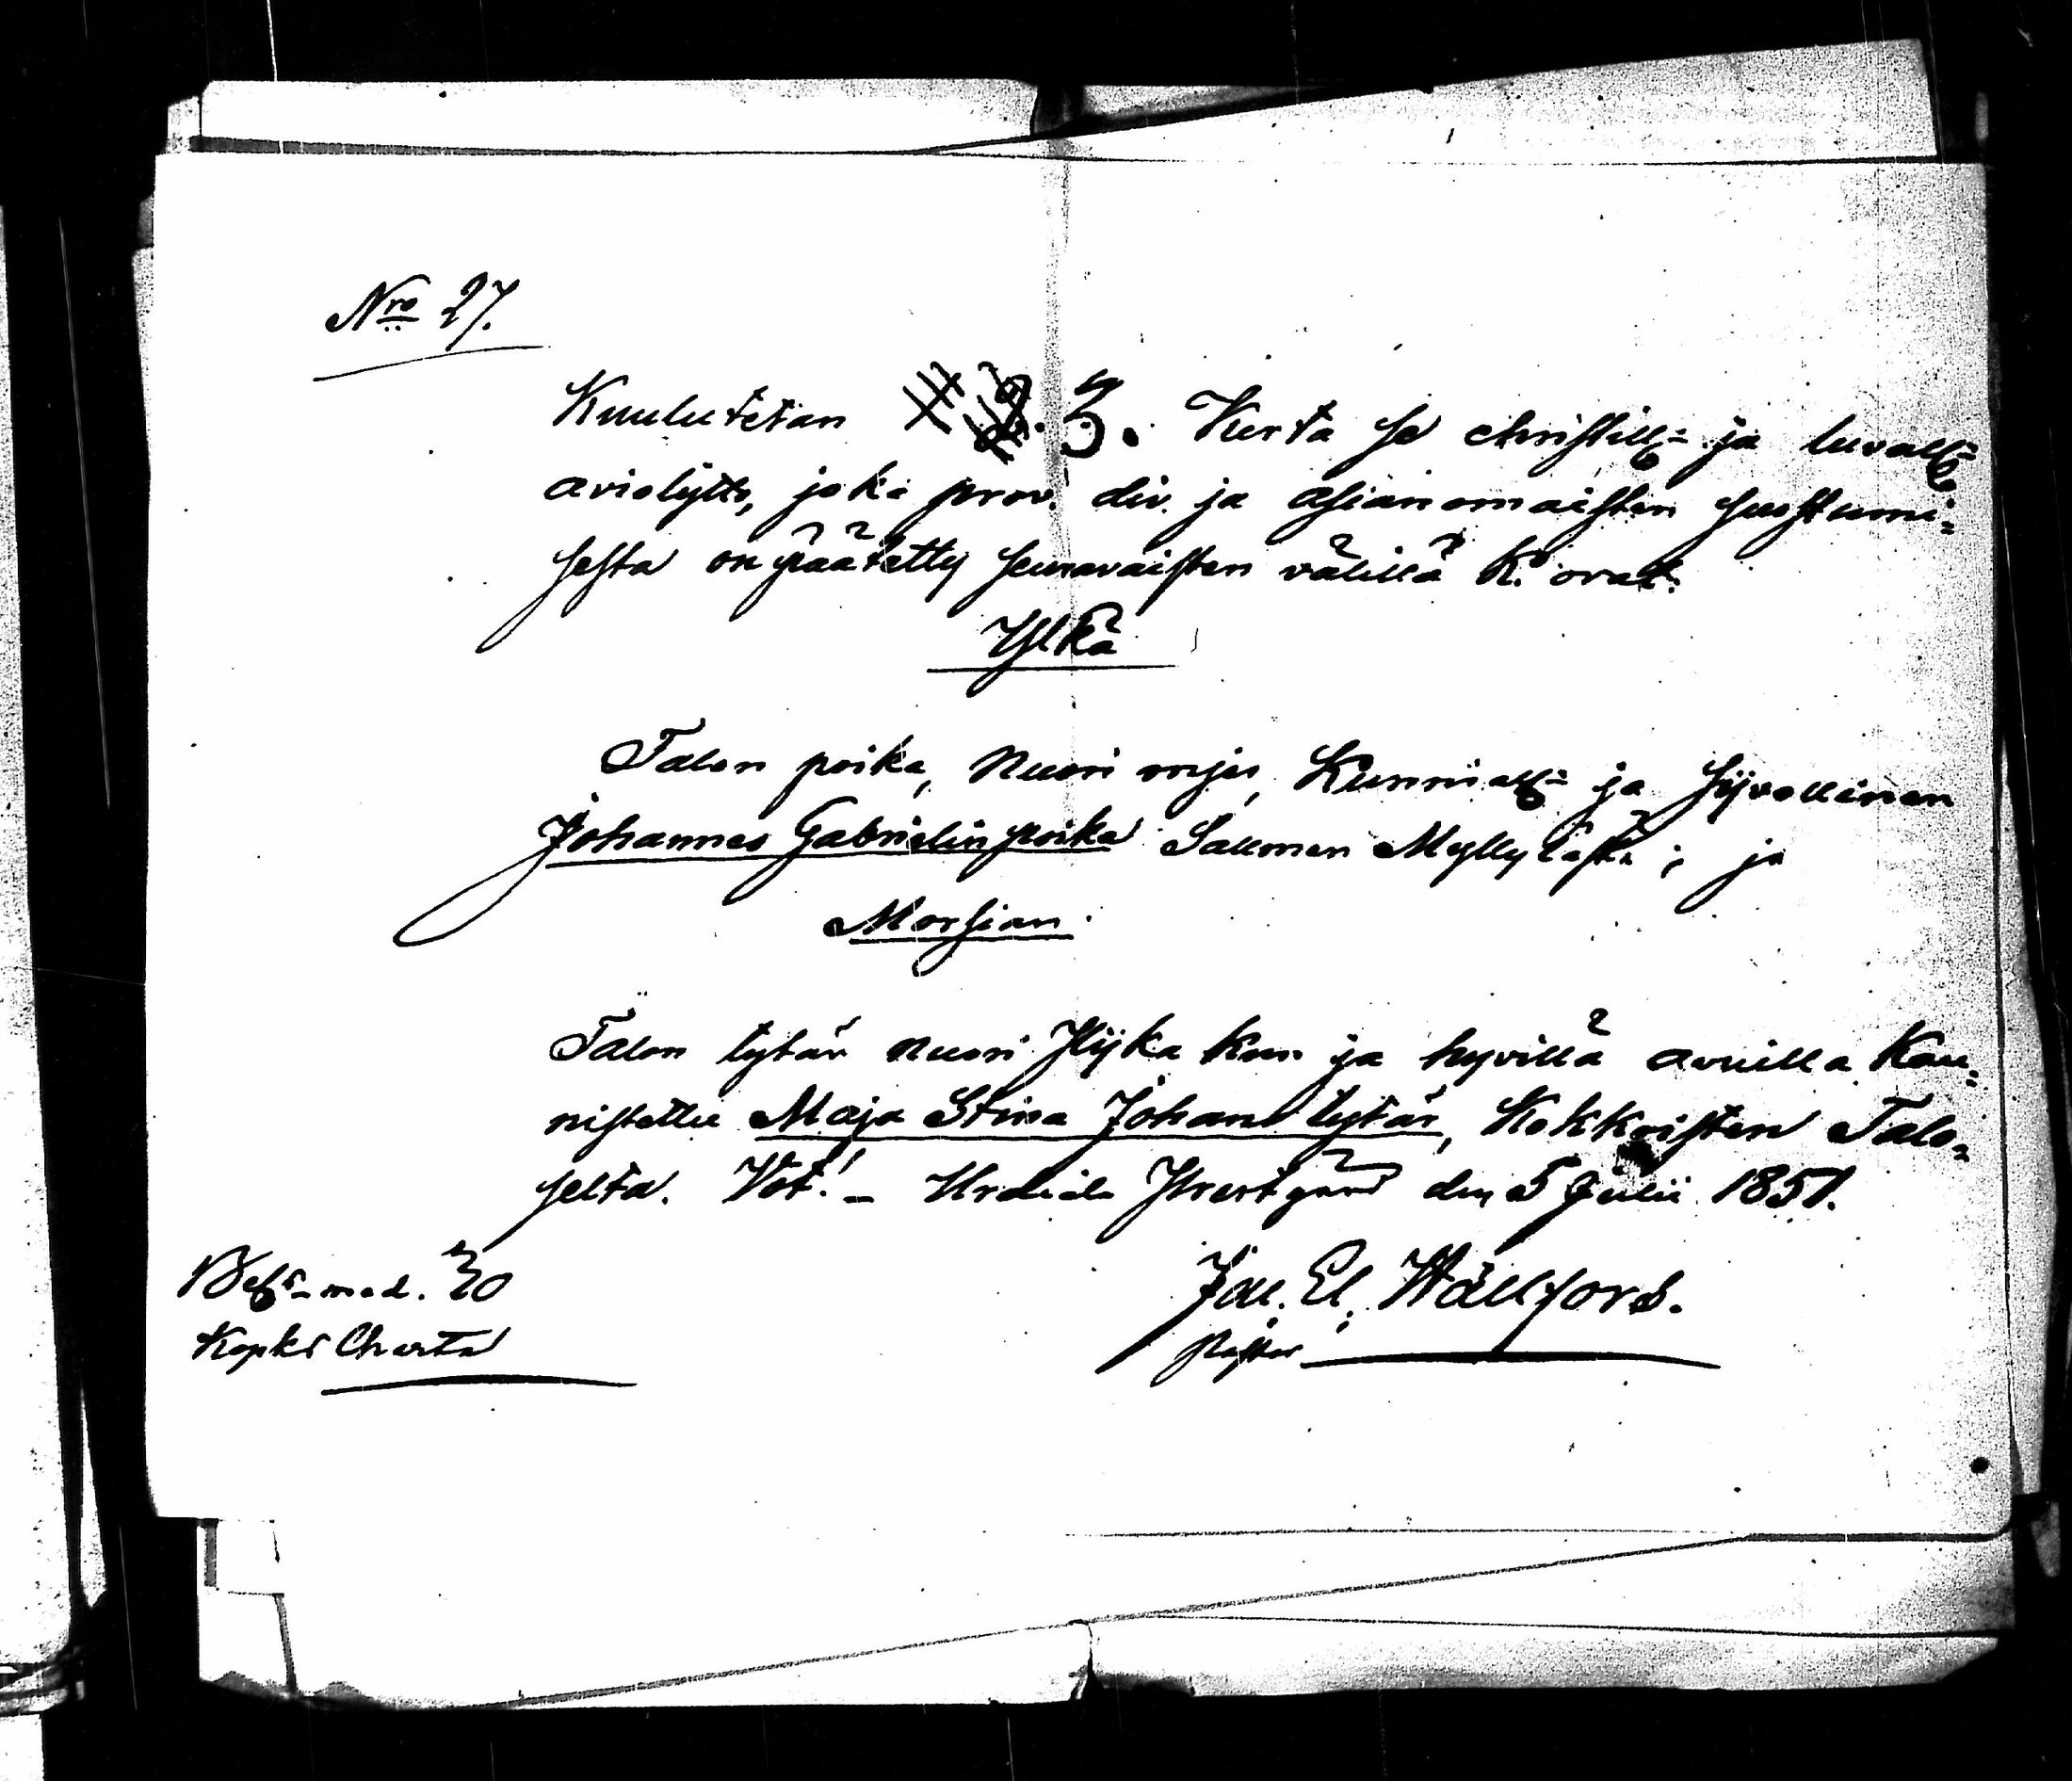 Nro 27.
Kuulutetan 3. Kerta se christill: ja luvall:
aviolijtto, joka prov. div. ja asianomaisten suostumi-
sesta on päätetty seuravaisten välillä K. ovat:
Ylkä
Talon poika, Nuori mies, Kunniall: ja Sijvollinen
Johannes Gabrielin poika Sallmen Myllylästä; ja
Morsian.
Talon tytär nuori Pijka Kun. ja hyvillä avuilla Kau-
nistettu Maja Stina Johans tytär, Kokkoisten Talo-
selta. Vot! – Urdiala Prestgård den 5 Julii 1851.
Bef:s med. 30 Jac. El. Wällfors.
Kopks Charta Pastor